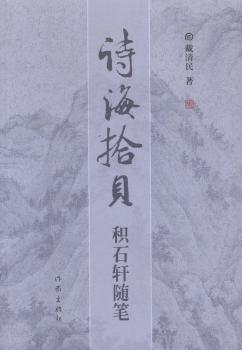 诗海拾贝
积石轩随笔
戴清民 著
作家出版社